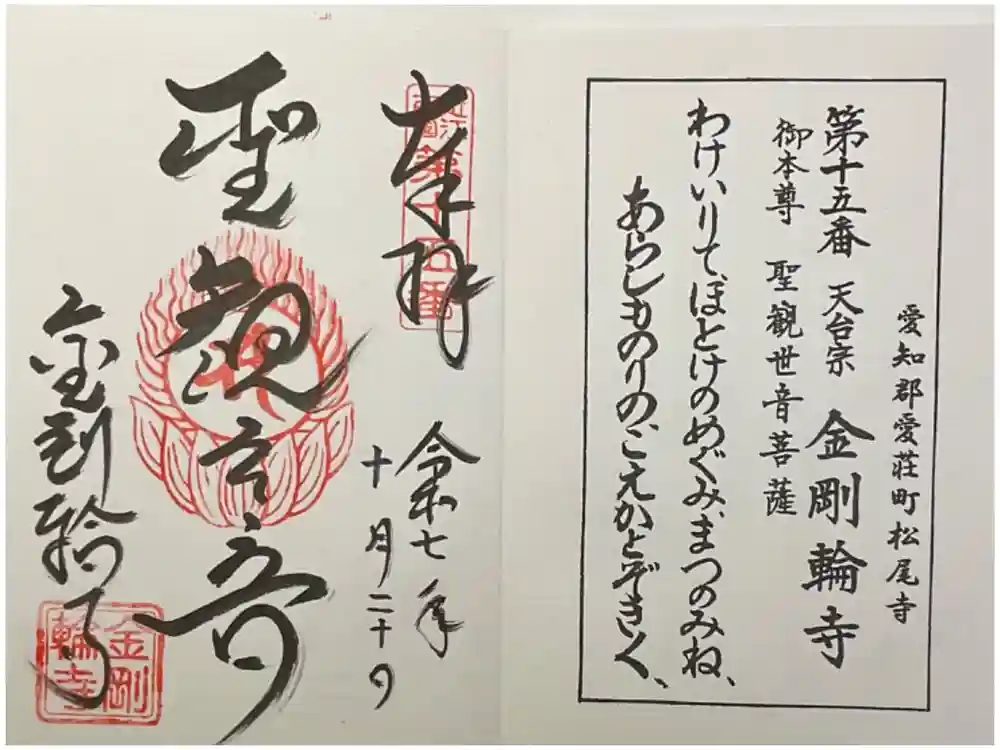 愛知郡愛荘町松尾寺
第十五番 天台宗 金剛輪寺
御本尊 聖観世音菩薩
わけいりて、ほとけのめぐみ、まつのみね、
あらしものりの、こえかとぞきく、
奉拝
近江西国
第十五番
令和七年
十月二十日
聖観世音
金剛輪寺
金剛輪寺